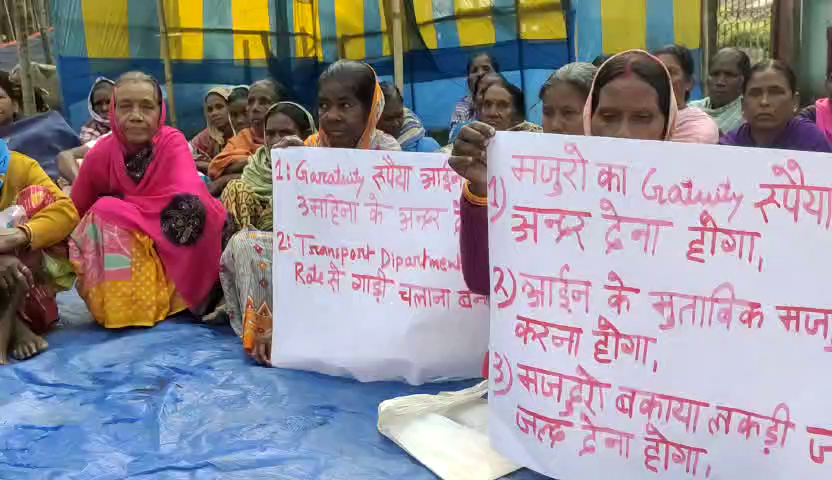 1: Garatuity रुपैया आईन
3 महिना के अन्दर दे
2: Transport Dipartment
Role से गाड़ी चलाना बन
मजुरो का Gratuity रुपैया
1) अन्दर देना होगा,
2) आईन के मुताबिक मजदु
करना होगा,
3) मजदुरो बकाया लकड़ी ज
जल्द देना होगा,